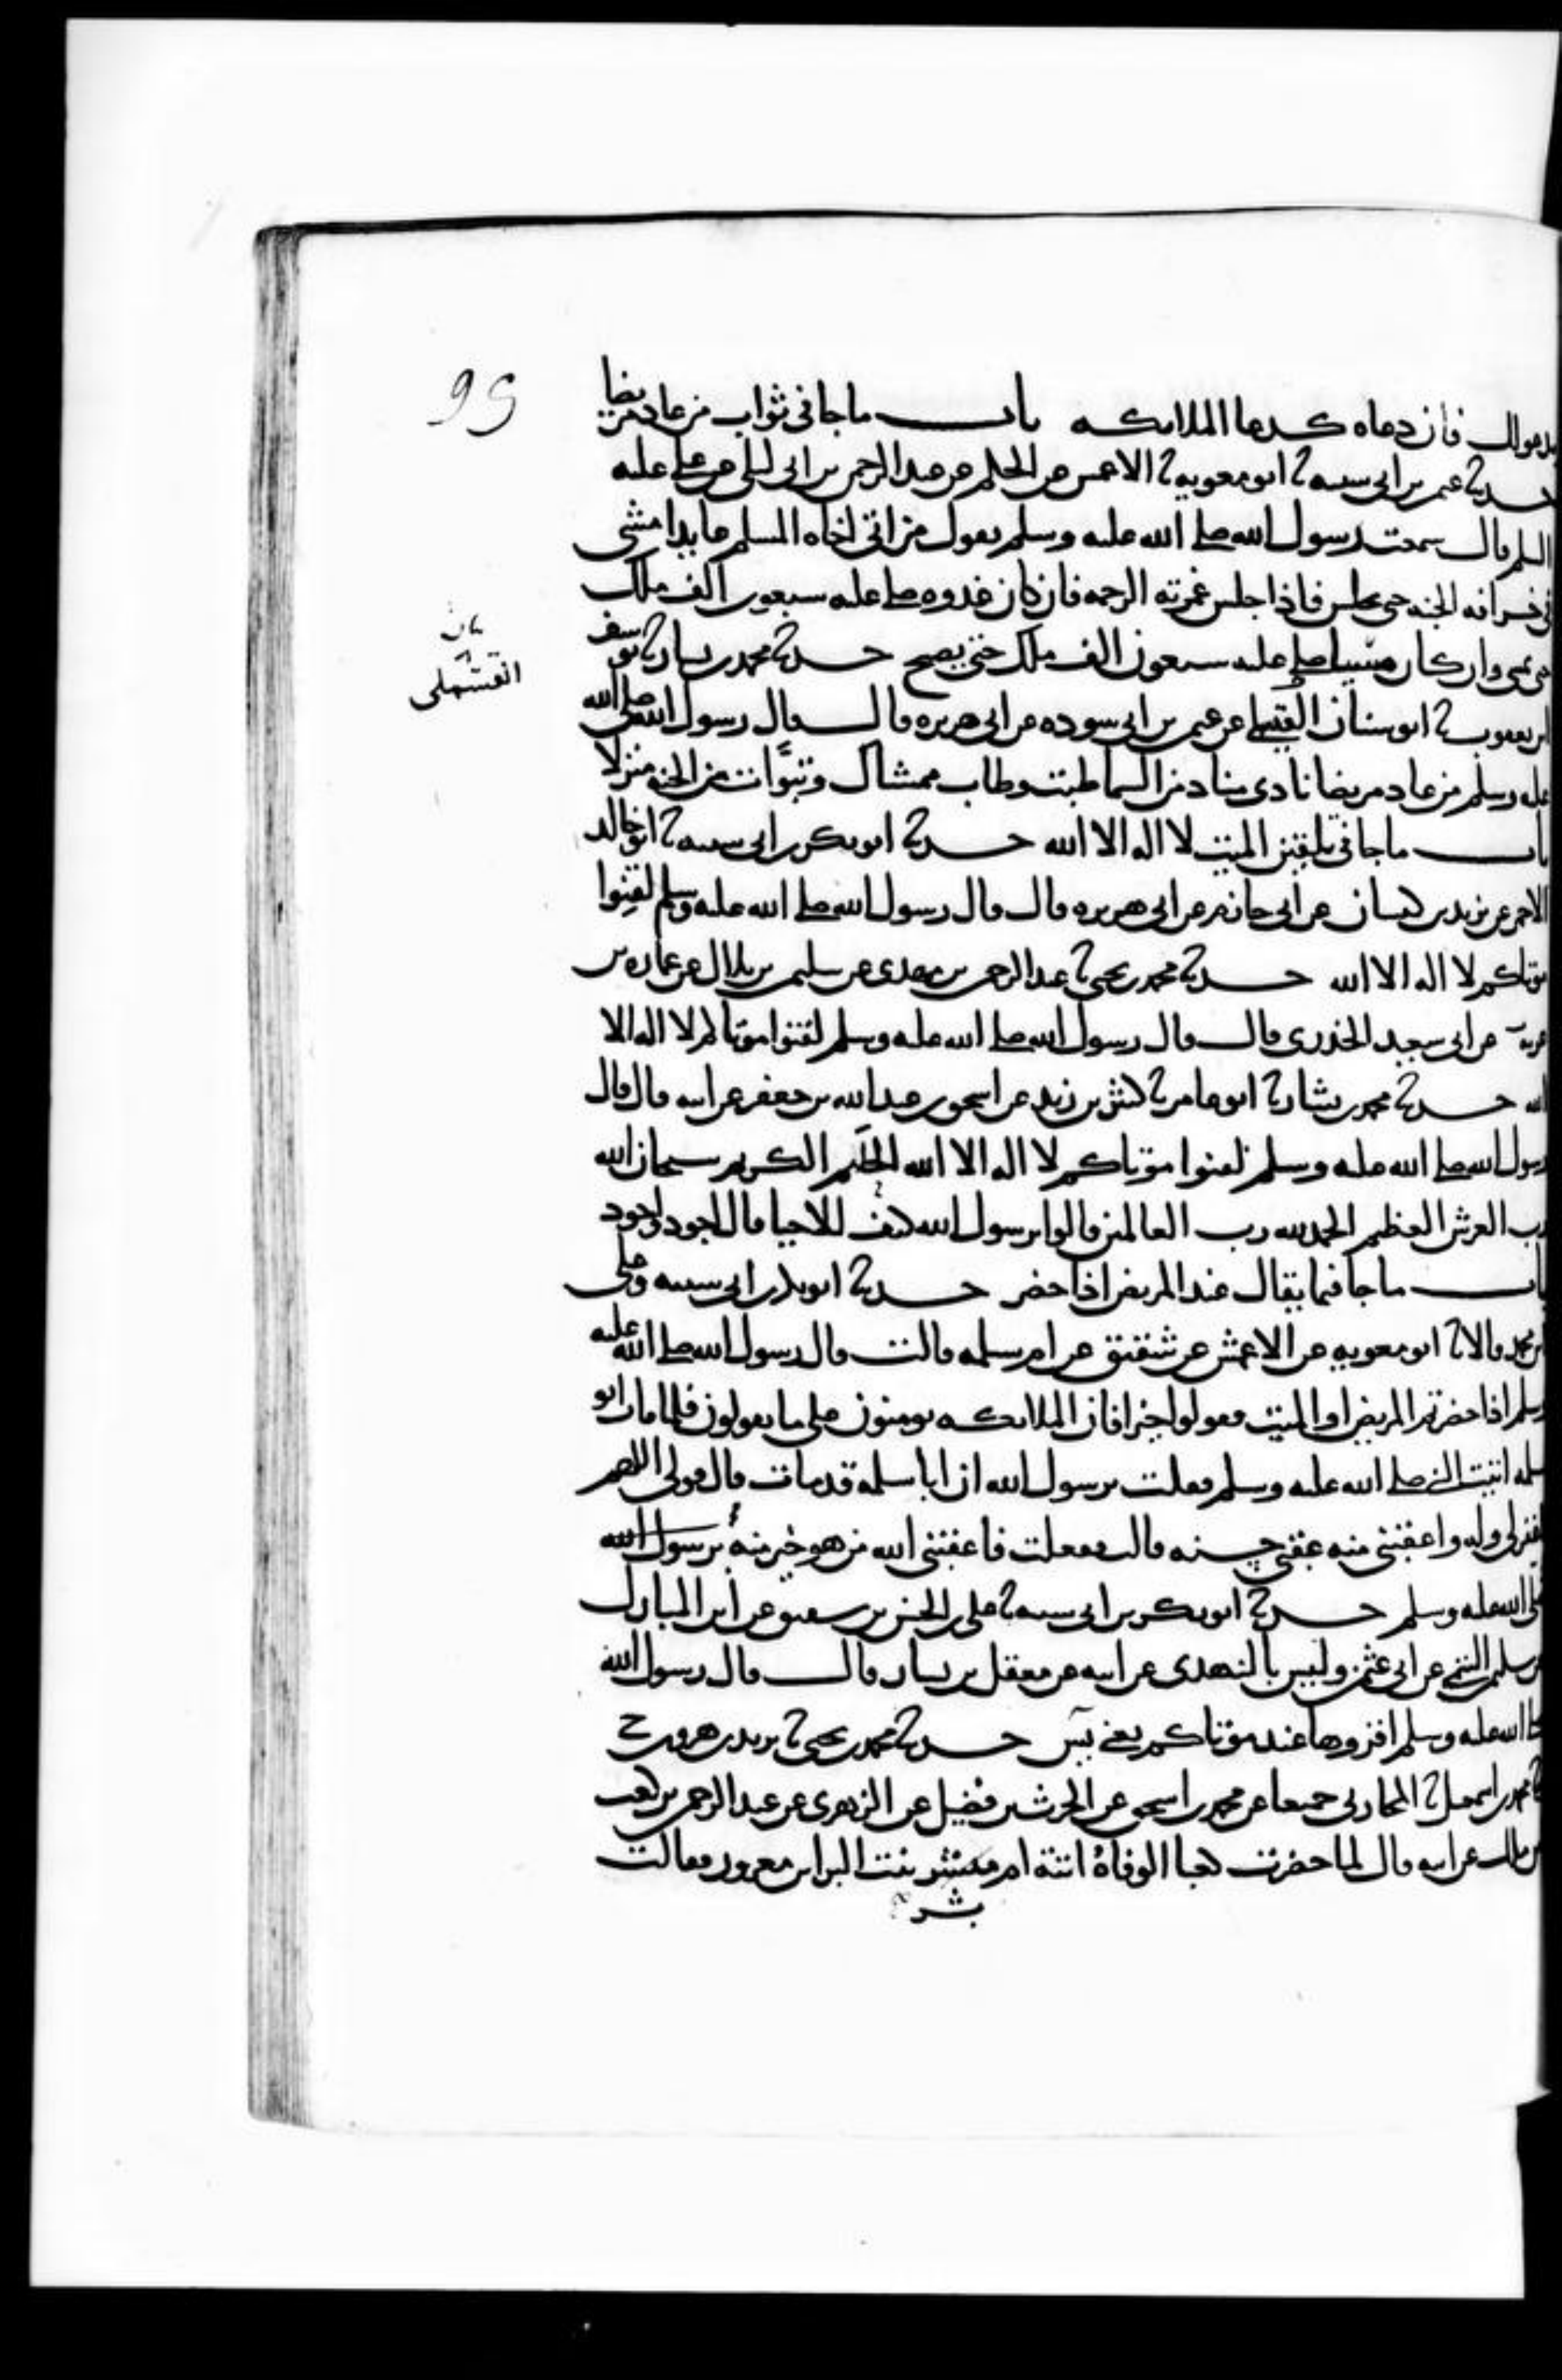 95
يدعو لك فان دعاه كدعا الملائكه باب ما جا في ثواب من عاد مريضا
حدثنا عثمن بن ابي شيبه ثنا ابو معويه ثنا الاعمش عن الحكم عن عبد الرحمن بن ابي ليلى عن علي عليه
السلم قال سمعت رسول الله صلى الله عليه وسلم يقول من اتى اخاه المسلم عايدا مشى
في خرافه الجنه حتى يجلس فاذا جلس غمرته الرحمه فان كان غدوه صلى عليه سبعون الف ملك
حتى يمسي وان كان مسيا صلى عليه سبعون الف ملك حتى يصبح حدثنا محمد بن بشار ثنا يوسف
بن يعقوب ثنا ابو سنان القسملي عن عثمن بن ابي سوده عن ابي هريره قال قال رسول الله صلى الله
عليه وسلم من عاد مريضا نادى مناد من السما طبت وطاب ممشاك وتبوات من الجنه منزلا
باب ما جا في تلقين الميت لا اله الا الله حدثنا ابو بكر بن ابي شيبه ثنا ابو خالد
الاحمر عن يزيد بن كيسان عن ابي حازم عن ابي هريره قال قال رسول الله صلى الله عليه وسلم لقنوا
موتاكم لا اله الا الله حدثنا محمد بن يحيى ثنا عبد الرحمن بن مهدي عن سليمن بن بلال عن عماره بن
غزيه عن ابي سعيد الخدري قال قال رسول الله صلى الله عليه وسلم لقنوا موتاكم لا اله الا
الله حدثنا محمد بن بشار ثنا ابو عامر ثنا كثير بن زيد عن اسحق بن عبد الله بن جعفر عن ابيه قال قال
رسول الله صلى الله عليه وسلم لقنوا موتاكم لا اله الا الله الحليم الكريم سبحان الله
رب العرش العظيم الحمد لله رب العالمين قالوا يرسول الله كيف للاحيا قال اجود واجود
باب ما جا فيما يقال عند المريض اذا حضر حدثنا ابو بكر بن ابي شيبه وعلي
بن محمد قالا ثنا ابو معويه عن الاعمش عن شقيق عن ام سلمه قالت قال رسول الله صلى الله عليه
وسلم اذا حضرتم المريض او الميت فقولوا خيرا فان الملائكه يومنون على ما يقولون فلما مات ابو
سلمه اتيت النبي صلى الله عليه وسلم فقلت يرسول الله ان ابا سلمه قد مات قال قولي اللهم
اغفر لي وله واعقبني منه عقبى حسنه قالت ففعلت فاعقبني الله من هو خير منه رسول الله
صلى الله عليه وسلم حدثنا ابو بكر بن ابي شيبه ثنا علي بن الحسن بن شقيق عن ابن المبارك
عن سليمن التيمي عن ابي عثمن وليس بالنهدي عن ابيه عن معقل بن يسار قال قال رسول الله
صلى الله عليه وسلم اقروها عند موتاكم يعني يس حدثنا محمد بن يحيى ثنا يزيد بن هرون ح
ثنا محمد بن اسمعيل ثنا المحاربي جميعا عن محمد بن اسحق عن الحرث بن فضيل عن الزهري عن عبد الرحمن بن كعب
بن ملك عن ابيه قال لما حضرت كعبا الوفاة اتته ام مبشر بنت البرا بن معرور فقالت
بشر
القسملي